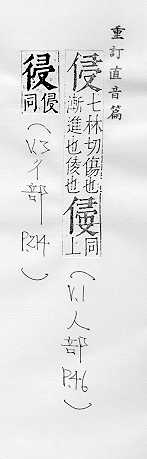 重訂直音篇
侵七林切傷也漸進也倰也同上(V.1人部P.4.6)
侵同(V.3彳部P.214.)